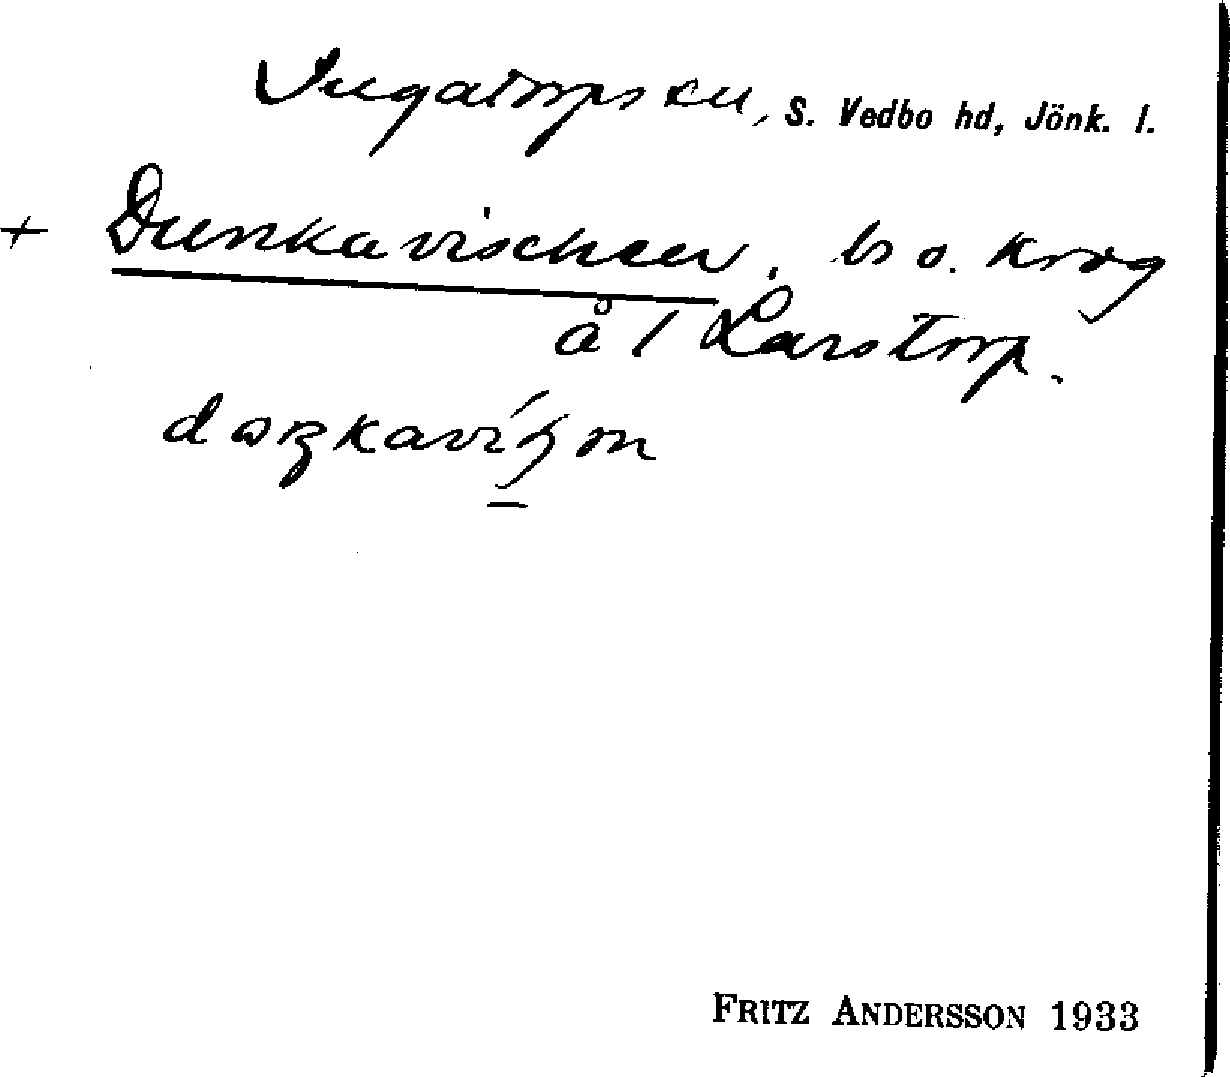 Ingatorps sn, S. Vedbo hd, Jönk. l.
+ Dunkavischen, bs o. krog
å 1 Larstorp.
FRITZ ANDERSSON 1933